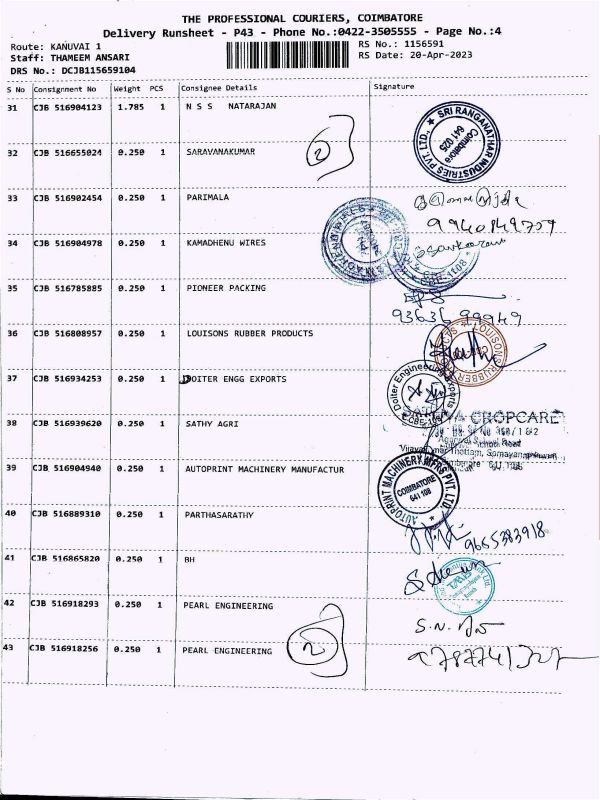 THE PROFESSIONAL COURIERS, COIMBATORE
Delivery Runsheet - P43 - Phone No.:0422-3505555 - Page No.:4
Route: KANUVAI 1
RS No.: 1156591
Staff: THAMEEM ANSARI
RS Date: 20-Apr-2023
DRS No.: DCJB115659104
S No Consignment No Weight PCS Consignee Details Signature
31 CJB 516904123 1.785 1 N S S NATARAJAN
SRI RANGANATHAR INDUSTRIES PVT. LTD., ★ Coimbatore 641 025
2
32 CJB 516655024 0.250 1 SARAVANAKUMAR
33 CJB 516902454 0.250 1 PARIMALA
34 CJB 516904978 0.250 1 KAMADHENU WIRES
KAMADHENU WIRES
35 CJB 516785885 0.250 1 PIONEER PACKING
93636 99949
36 CJB 516808957 0.250 1 LOUISONS RUBBER PRODUCTS
LOUISONS RUBBER
37 CJB 516934253 0.250 1 DOITER ENGG EXPORTS
Doiter Engineering Exports
38 CJB 516939620 0.250 1 SATHY AGRI
CROPCARE
39 CJB 516904940 0.250 1 AUTOPRINT MACHINERY MANUFACTUR
AUTOPRINT MACHINERY MFRS PVT. LTD. ★ COIMBATORE 641 108
40 CJB 516889310 0.250 1 PARTHASARATHY
9655383918
41 CJB 516865820 0.250 1 BH
42 CJB 516918293 0.250 1 PEARL ENGINEERING
43 CJB 516918256 0.250 1 PEARL ENGINEERING
2